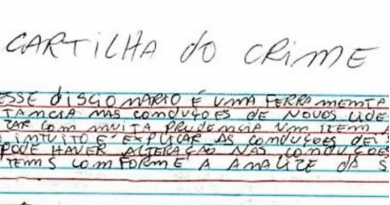 CARTILHA do CRIME
ESSE disCIONARIO É UMA FERRAMENTA
TANCIA NAS CONDUÇÕES DE NOVOS LIDE
ZAR COM MUITA PRUDENCIA UM ITEM
INTUITO É EXPLICAR AS CONDUÇÕES DE
PODE HAVER ALTERAÇÃO NAS CONDUÇÕES
TEMS COMFORME A ANALIZE DA S